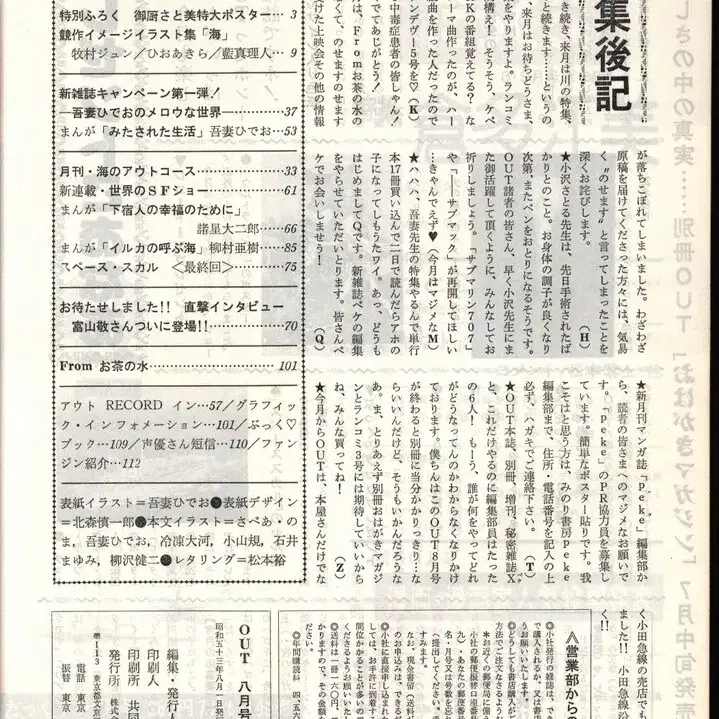 特別ふろく 御厨さと美特大ポスター…3
競作イメージイラスト集「海」
牧村ジュン／ひおあきら／藍真理人…9
新雑誌キャンペーン第一弾！
―吾妻ひでおのメロウな世界――37
まんが「みたされた生活」吾妻ひでお…53
月刊・海のアウトコース――33
新連載・世界のSFショー――61
まんが「下宿人の幸福のために」
諸星大二郎――66
まんが「イルカの呼ぶ海」柳村亜樹――85
スペース・スカル 〈最終回〉――75
お待たせしました!! 直撃インタビュー
富山敬さんついに登場!!――70
From お茶の水――101
アウト RECORD イン…57／グラフィッ
ク・イン フォメーション…101／ぶっく♡
ブック…109／声優さん短信…110／ファン
ジン紹介…112
表紙イラスト＝吾妻ひでお●表紙デザイン
＝北森慎一郎●本文イラスト＝さべあ・の
ま，吾妻ひでお，冷凍大河，小山規，石井
まゆみ，柳沢健二●レタリング＝松本裕
集後記
き続き、来月は川の特集、
と続きます……というの
、来月はお待ちどうさま、
をやりますよ。ランコミ
構え！ そうそう、ケペ
Kの番組覚えてる？ な
ーマ曲作ったのが、ハー
曲を作った人だったので
ンデヴー5号を♡（K）
中毒症患者の皆しゃん！
であじがとう！
は、Fromお茶の水の
くて、のせますのせます
けた上映会その他の情報
が落ちこぼれてしまいました。わざわざ
原稿を届けてくださった方々には、気易
く〝のせます〟と言ってしまったことを
深くお詫びします。（H）
★小沢さとる先生は、先日手術されたば
かりとのこと。お身体の調子が良くなり
次第、またペンをおとりになるそうです。
OUT諸者の皆さん、早く小沢先生にま
た御活躍して頂くように、みんなしてお
祈りしましょう。「サブマリン707」
や「――サブマック」が再開してほしい
…きゃんでえず♥（今月はマジメなM）
★ハハハ、吾妻先生の特集やるんで単行
本17冊買い込んで二日で読んだらアホの
子になってしもうたワイ。あっ、どうも
はじめましてQです。新雑誌ペケの編集
をやらせていただいとります。皆さんペ
ケでお会いしませう！（Q）
★新月刊マンガ誌「peke」編集部か
ら、読者の皆さまへのマジメなお願いで
す。「peke」のPR協力員を募集し
ています。簡単なポスター貼りです。我
こそはと思う方は、みのり書房peke
編集部まで、住所・電話番号を記入の上
必ず、ハガキでご連絡下さい。（T）
★OUT本誌、別冊、増刊、秘密雑誌X
と、これだけやるのに編集部員はたった
の6人！ もーう、誰が何をやってどれ
がどうなってんのかわからなくなりかけ
ております。僕ちんはこのOUT8月号
が終わると別冊に当分かかりっきり…な
らいいんだけど、そうもいかんだろうな
あ。ま、とりあえず別冊おはがきマガジ
ンとランコミ3号には期待していいから
ね、みんな買ってね！（Z）
★今月からOUTは、本屋さんだけでな
く小田急線の売店でも
ました!! 小田急線
く!!
しさの中の真実……別冊OUT「おはがきマガジン」7月中旬発売
〈営業部から
◎小社発行の雑誌は、
で購入されるか、又は書
うお願いいたします。
◎どうしても書店購入が
方法でご注文なさるよう
＊お近くの郵便局に備え
小社の郵便振替口座番号
名・月号又は号数を忘
九）、あなたの郵便番号
へ提出してください。
すみます。
なお、現金書留（送料が
のお申込みは、できるだ
◎小社に直接申し込まれ
しては、お手許に到着す
間位かかることが多いの
くださるようお願いいた
◎送料は一冊一六〇円、
かりますので、その金額
ださい。
◎年間購読料
OUT 八月号
昭和五十三年八月一日発
編集・発行人
印刷人
印刷所 共同
発行所 株式会
〒113 東京都文京
電話 東京
振替 東京